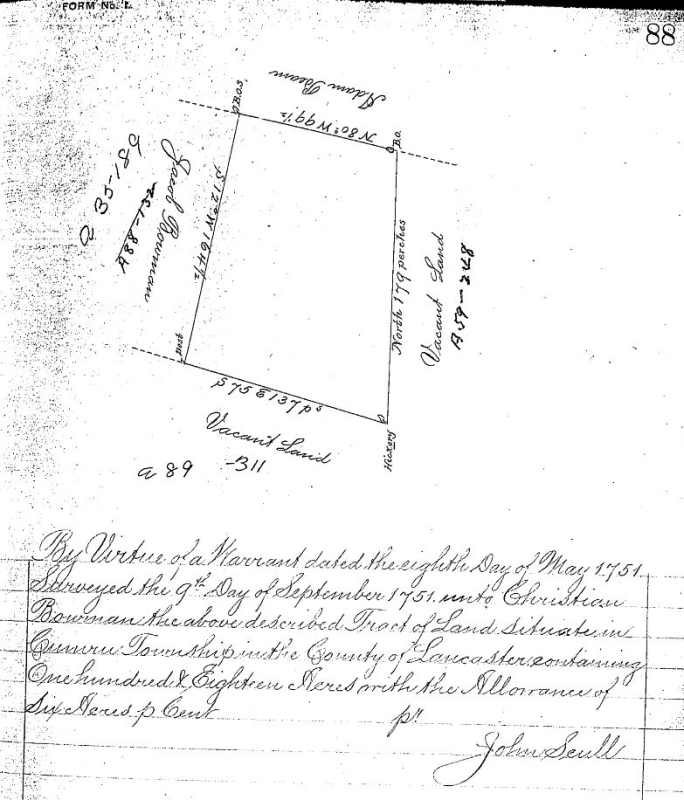 FORM No. 1.
88
Adam Beam
B.O.S
N80°W99½
B.O.
a 35-180
A88-132
Jacob Bowman
S12°W164½
North 179 perches
Vacant Land
A59-248
Post
S75E137ps
Hickory
Vacant Land
a 89 -311
By Virtue of a Warrant dated the eighth Day of May 1751
Surveyed the 9th Day of September 1751 unto Christian
Bowman the above described Tract of Land Situate in
Cumru Township in the County of Lancaster containing
One hundred & Eighteen Acres with the Allowance of
Six Acres p Cent pr
John Scull